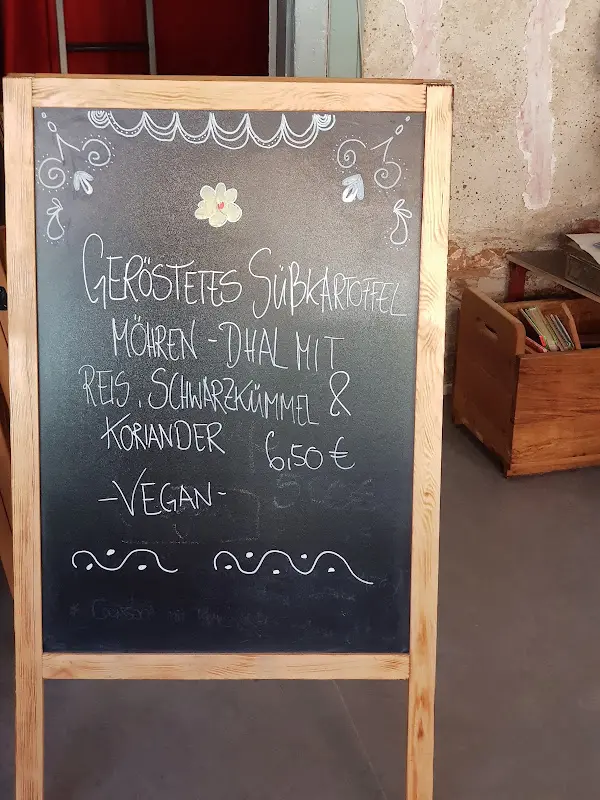 GERÖSTETES SÜßKARTOFFEL
MÖHREN - DHAL MIT
REIS, SCHWARZKÜMMEL &
KORIANDER 6,50 €
- VEGAN -